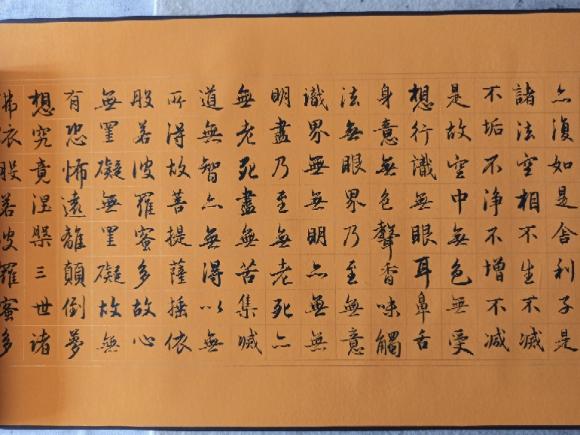 亦復如是舍利子是
諸法空相不生不滅
不垢不淨不增不減
是故空中無色無受
想行識無眼耳鼻舌
身意無色聲香味觸
法無眼界乃至無意
識界無無明亦無無
明盡乃至無老死亦
無老死盡無苦集滅
道無智亦無得以無
所得故菩提薩埵依
般若波羅蜜多故心
無罣礙無罣礙故無
有恐怖遠離顛倒夢
想究竟涅槃三世諸
佛依般若波羅蜜多